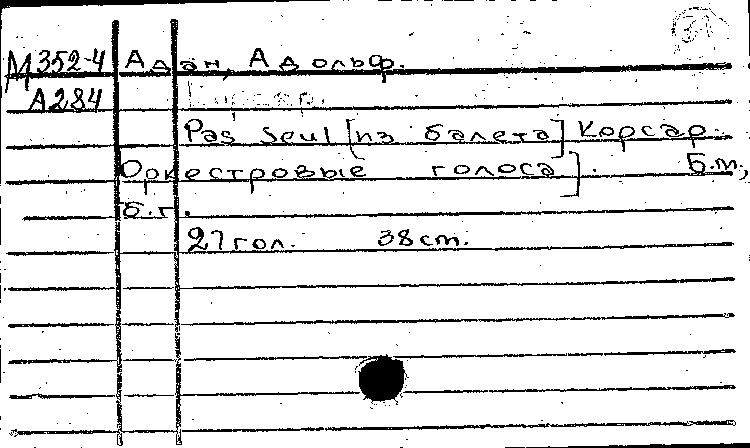 М352-4 Адан, Адольф.
А284
Pas Seul [из балета] Корсар.
Оркестровые голоса]. Б.м.,
б.г.
27 гол. 38 cm.